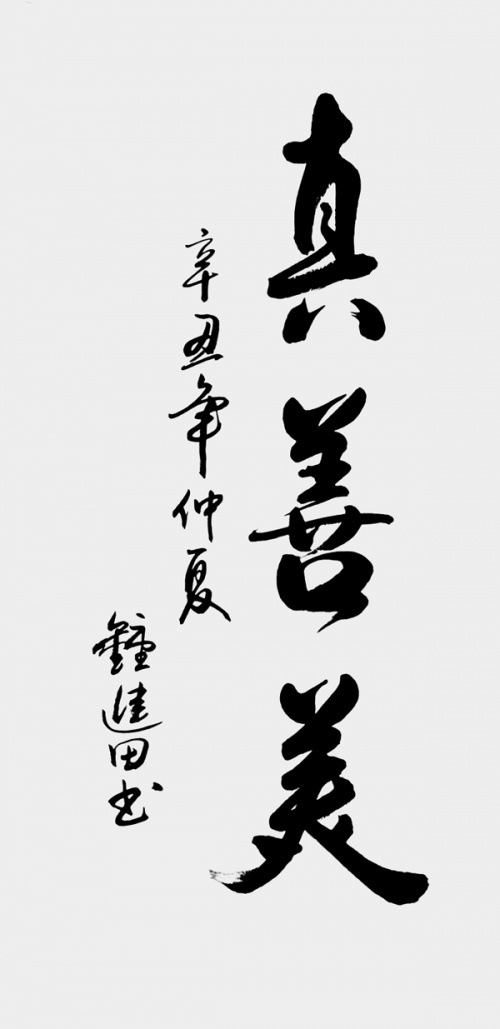 真善美
辛丑年仲夏
鍾進田书